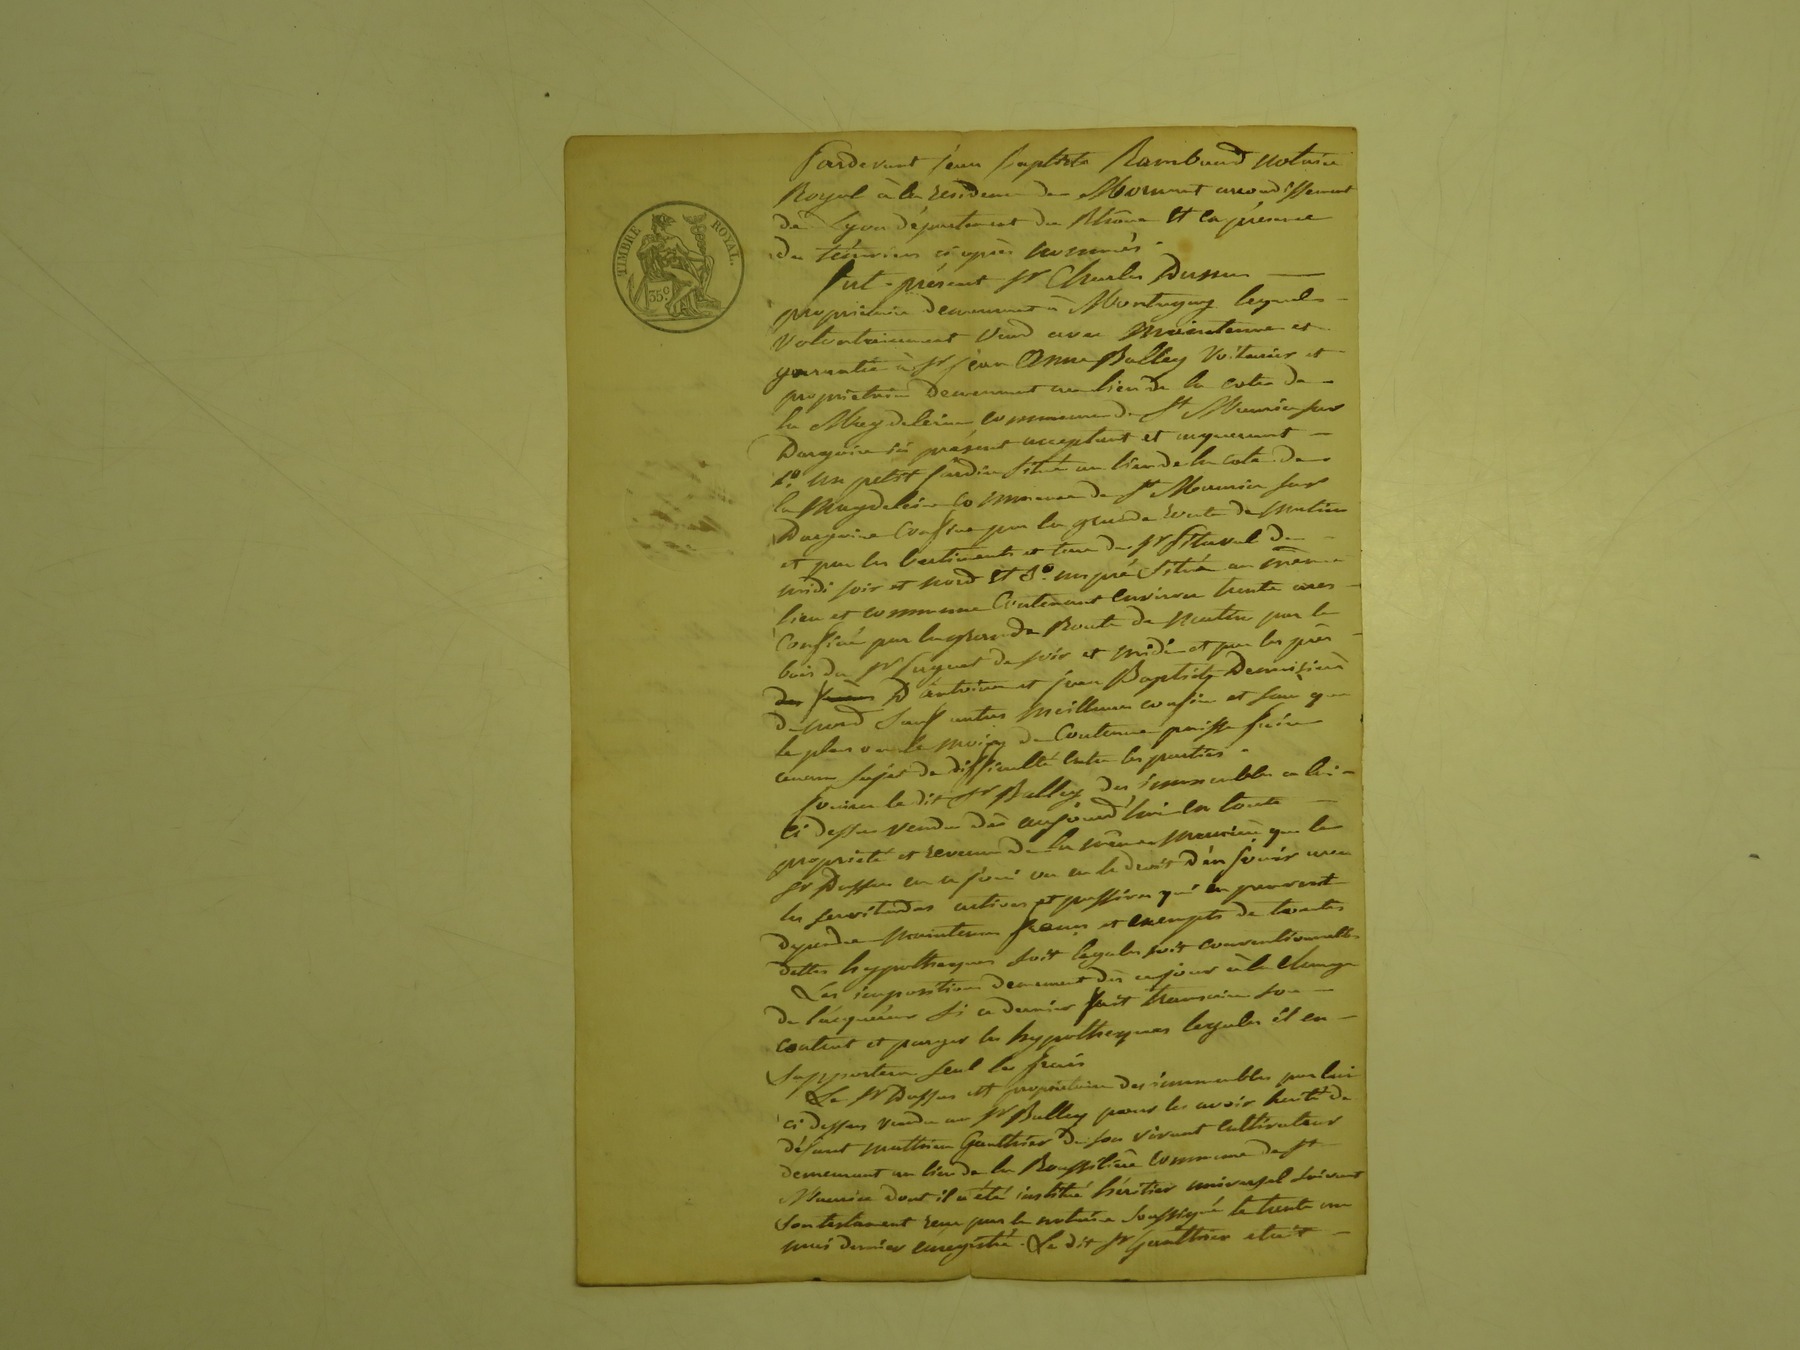 TIMBRE ROYAL.
35c
Pardevant jean baptiste Rambaud notaire
Royal à la résidence de Mornant arrondissement
de Lyon département du Rhône et en présence
des témoins ci après nommés.
Fut présent Sr Charles Dussus
propriétaire demeurant à Montagny lequel
volontairement vend avec maintenue et
garantie à Sr jean Anne Balley voiturier et
propriétaire demeurant au lieu de la cote de
la Magdeleine commune de St Maurice sur
Dargoire ici présent acceptant et acquerant
1o un petit jardin situé au lieu de la cote de
la Magdeleine commune de St Maurice sur
Dargoire confiné par la grande route de matin
et par les batiments et terre du Sr de
midi soir et nord et 2o un pré situé au même
lieu et commune contenant environ trente ares
confiné par la grande Route de matin par le
bois du Sr de soir et midi et par les prés
des D'antoine et jean Baptiste
de nord sauf autres meilleurs confins et sans que
le plus ou le moins de contenue puisse faire
aucun sujet de difficulté entre les parties.
Jouira le dit Sr Balley des immeubles a lui
ci dessus vendu dès aujourd'hui en toute
propriété et revenu de la même manière que le
Sr Dussus en a joui ou eu le droit d'en jouir avec
les servitudes actives et passives qui en peuvent
dépendre maintenus francs et exempts de toutes
dettes hypothèques soit légales soit conventionnelles
Les impositions demeurent dès ce jour à la charge
de l'acquéreur si ce dernier fait transcrire son
contrat et purger les hypothèques legales il en
supportera seul les frais
Le Sr Dussus est propriétaire des immeubles par lui
ci dessus vendu au Sr Balley pour les avoir hérité de
défunt mathieu Gauthier de son vivant cultivateur
demeurant au lieu de la Roussilière commune de St
Maurice dont il a été institué héritier universel suivant
son testament reçu par le notaire soussigné le trente un
mai dernier enregistré. Le dit Sr Gauthier était